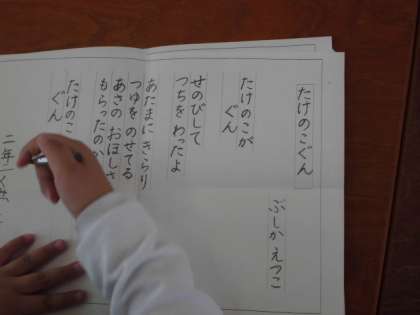 たけのこぐん
ぶしか えつこ
たけのこが
ぐん
せのびして
つちを わったよ
あたまに きらり
つゆを のせてる
あさの おほしさ
もらったのか
たけのこ
ぐん
二年